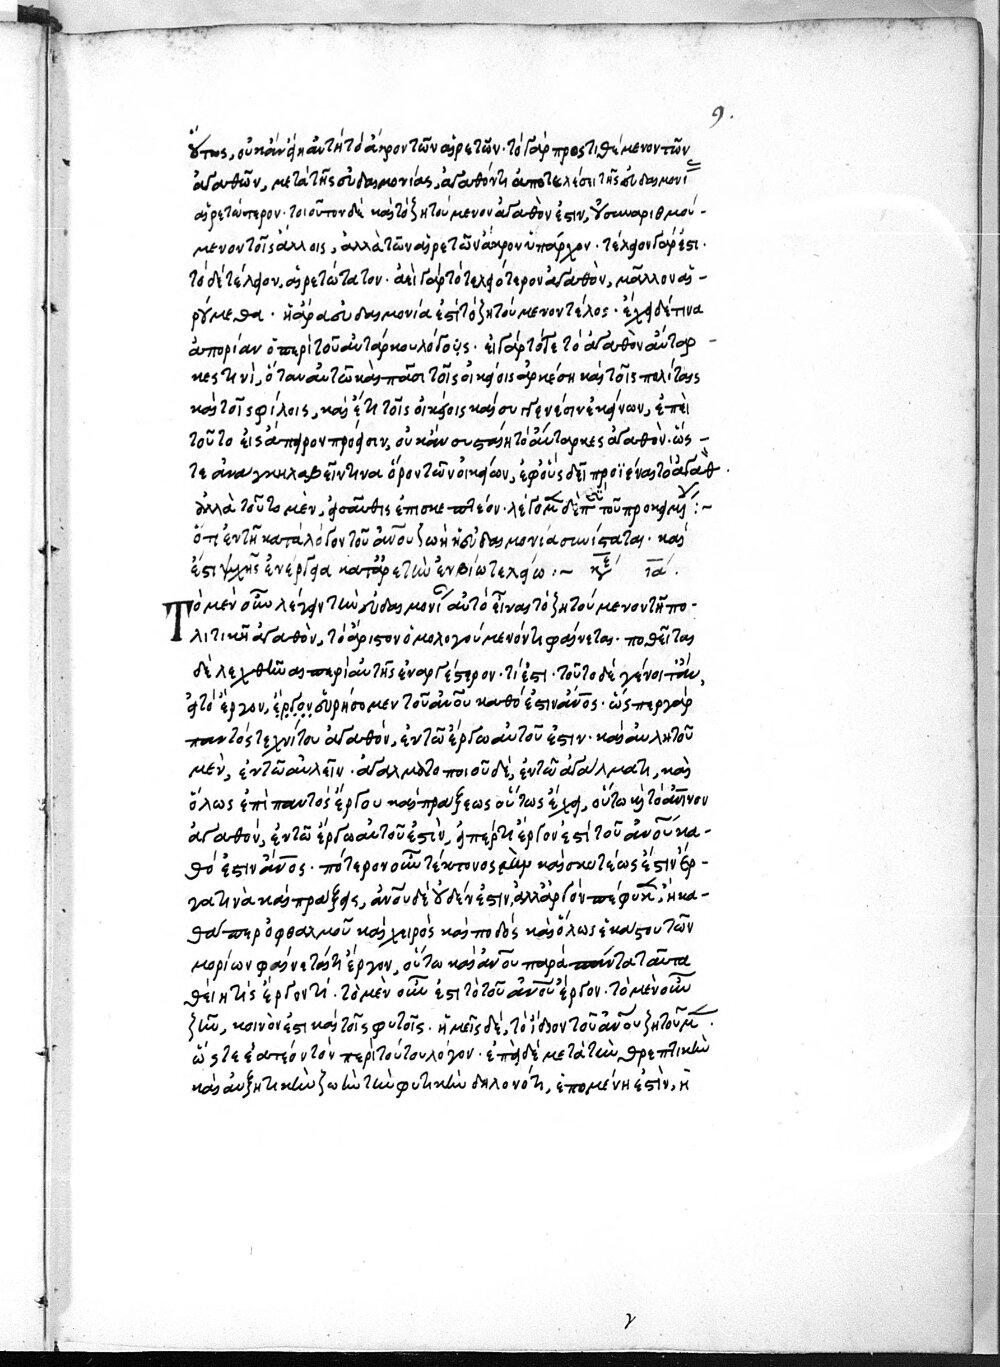 9.
οὕτως, οὐκ ἂν φήη αὐτὴ τὸ ἄκρον τῶν αἱρετῶν· τὸ γὰρ προστιθέμενον τῶν
ἀγαθῶν, μετὰ τῆς εὐδαιμονίας, ἀγαθόν τι ἀποτελέσει τῆς εὐδαιμονί
αἱρετώτερον· τοιοῦτον δὲ καὶ τὸ ζητούμενον ἀγαθὸν ἐστιν, οὐ συναριθμού-
μενον τοῖς ἄλλοις, ἀλλὰ τῶν αἱρετῶν ἄκρον ὑπάρχον· τέλειον γάρ ἐστι·
τὸ δὲ τέλειον, αἱρετώτατον· ἀεὶ γὰρ τὸ τελειότερον ἀγαθὸν, μᾶλλον αἱ-
ρούμεθα· ἡ ἄρα εὐδαιμονία ἐστὶ τὸ ζητούμενον τέλος· ἔχει δέ τινα
ἀπορίαν ὁ περὶ τοῦ αὐτάρκου λόγος· εἰ γὰρ τότε τὸ ἀγαθὸν αὔταρ-
κες τινὶ, ὅταν αὐτῷ καὶ πᾶσι τοῖς οἰκείοις ἀρκέση καὶ τοῖς πολίταις
καὶ τοῖς φίλοις, καὶ ἔτι τοῖς οἰκείοις καὶ συγγενέσιν ἐκείνων, ἐπεὶ
τοῦτο εἰς ἄπειρον πρόεισιν, οὐκ ἂν συσταίη τὸ αὔταρκες ἀγαθόν· ὥς-
τε ἀνάγκη λαβεῖν τινα ὅρον τῶν οἰκείων, ἐφ' οὓς δεῖ προϊέναι τὸ ἀγαθ.
ἀλλὰ τοῦτο μὲν, εἰσαῦθις ἐπισκεπτέον· λέγομ δὲ π τοῦ προκειμ :~
ὅτι ἐν τῆ κατὰ λόγον τοῦ ἀνου ζωῆ ἡ εὐδαιμονία συνίσταται· καὶ
ἔστι ψυχῆς ἐνέργεια κατ' ἀρετὴν ἐν βίω τελείω :~ κε ια.
Τὸ μὲν οὖν λέγειν τὴν εὐδαιμονί αὐτὸ εἶναι τὸ ζητούμενον τῆ πο-
λιτικῆ ἀγαθὸν, τὸ ἄριστον ὁμολογούμενόν τι φαίνεται· ποθεῖται
δὲ λεχθῆναι περὶ αὐτῆς ἐναργέστερον· τί ἐστι· τοῦτο δὲ γένοιτ' ἂν,
εἰ τὸ ἔργον, ἔργον εὑρήσομεν τοῦ ἀνου καθό ἐστιν ἀνος· ὥσπερ γὰρ
παντὸς τεχνίτου ἀγαθὸν, ἐν τῷ ἔργω αὐτοῦ ἐστιν· καὶ αὐλητοῦ
μὲν, ἐν τῷ αὐλεῖν· ἀγαλματοποιοῦ δὲ, ἐν τῷ ἀγάλματι, καὶ
ὅλως ἐπὶ παντὸς ἔργου καὶ πράξεως οὕτως ἔχει, οὕτω κὴ τὸ ἀνινον
ἀγαθόν, ἐν τῷ ἔργω αὐτοῦ ἐστὶν, εἴπερ τι ἔργον ἐστὶ τοῦ ἀνου κα-
θό ἐστιν ἀνος· πότερον οὖν τέκτονος μὲν καὶ σκυτέως ἐστὶν ἔρ-
γα τινὰ καὶ πράξεις, ἀνου δὲ οὐδέν ἐστιν, ἀλλ' ἀργὸν πέφυκ, ἢ κα-
θάπερ ὀφθαλμοῦ καὶ χειρὸς καὶ ποδὸς καὶ ὅλως ἑκάστου τῶν
μορίων φαίνεταί τι ἔργον, οὕτω καὶ ἀνου παρὰ πάντα ταῦτα
θείη τίς ἔργον τί· τὸ μὲν οὖν ἐστι τὸ τοῦ ἀνου ἔργον· τὸ μὲν οὖν
ζῆν, κοινόν ἐστι καὶ τοῖς φυτοῖς· ἡμεῖς δὲ, τὸ ἴδιον τοῦ ἀνου ζητοῦμ·
ὥστε ἐατέον τὸν περὶ τούτου λόγον· ἐπεὶ δὲ μετὰ τὴν θρεπτικὴν
καὶ αὐξητικὴν ζωὴν τὴν φυτικὴν δηλονότι, ἑπομένη ἐστὶν, ἡ
γ